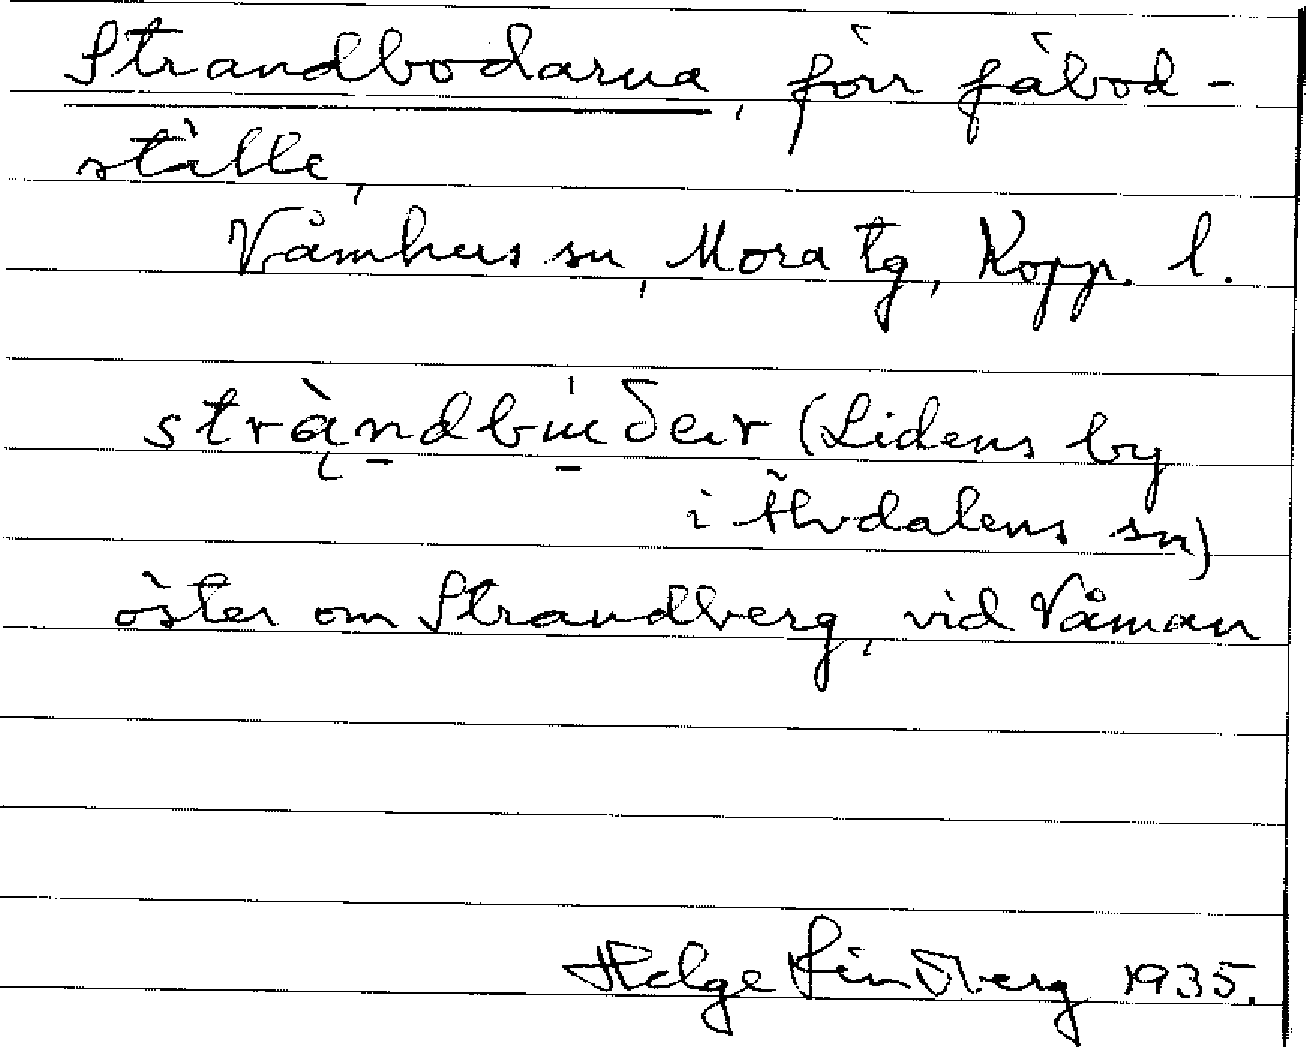 Strandbodarna, förr fäbod-
ställe,
Våmhus sn, Mora tg, Kopp. l.
strą̀ndbùðer (Lidens by
i Älvdalens sn)
öster om Strandberg, vid Våman
Helge Lindberg 1935.